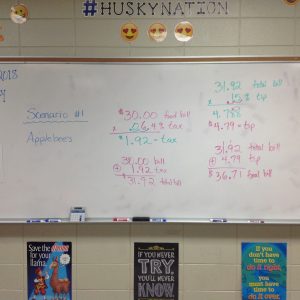 #HUSKYNATION
2018
Scenario #1
Applebees
$30.00 food bill
x .06.4% tax
$1.92 - tax
30.00 bill
+ 1.92 tax
$31.92 total bill
31.92 total bill
x .15% tip
4.788
$4.79 - tip
31.92 total bill
+ 4.79 tip
$36.71 final bill
Save the drama
for your
llama
IF YOU NEVER
TRY,
YOU'LL NEVER
KNOW.
If you
don't have
time to
do it right,
you
must have
time to
do it over.